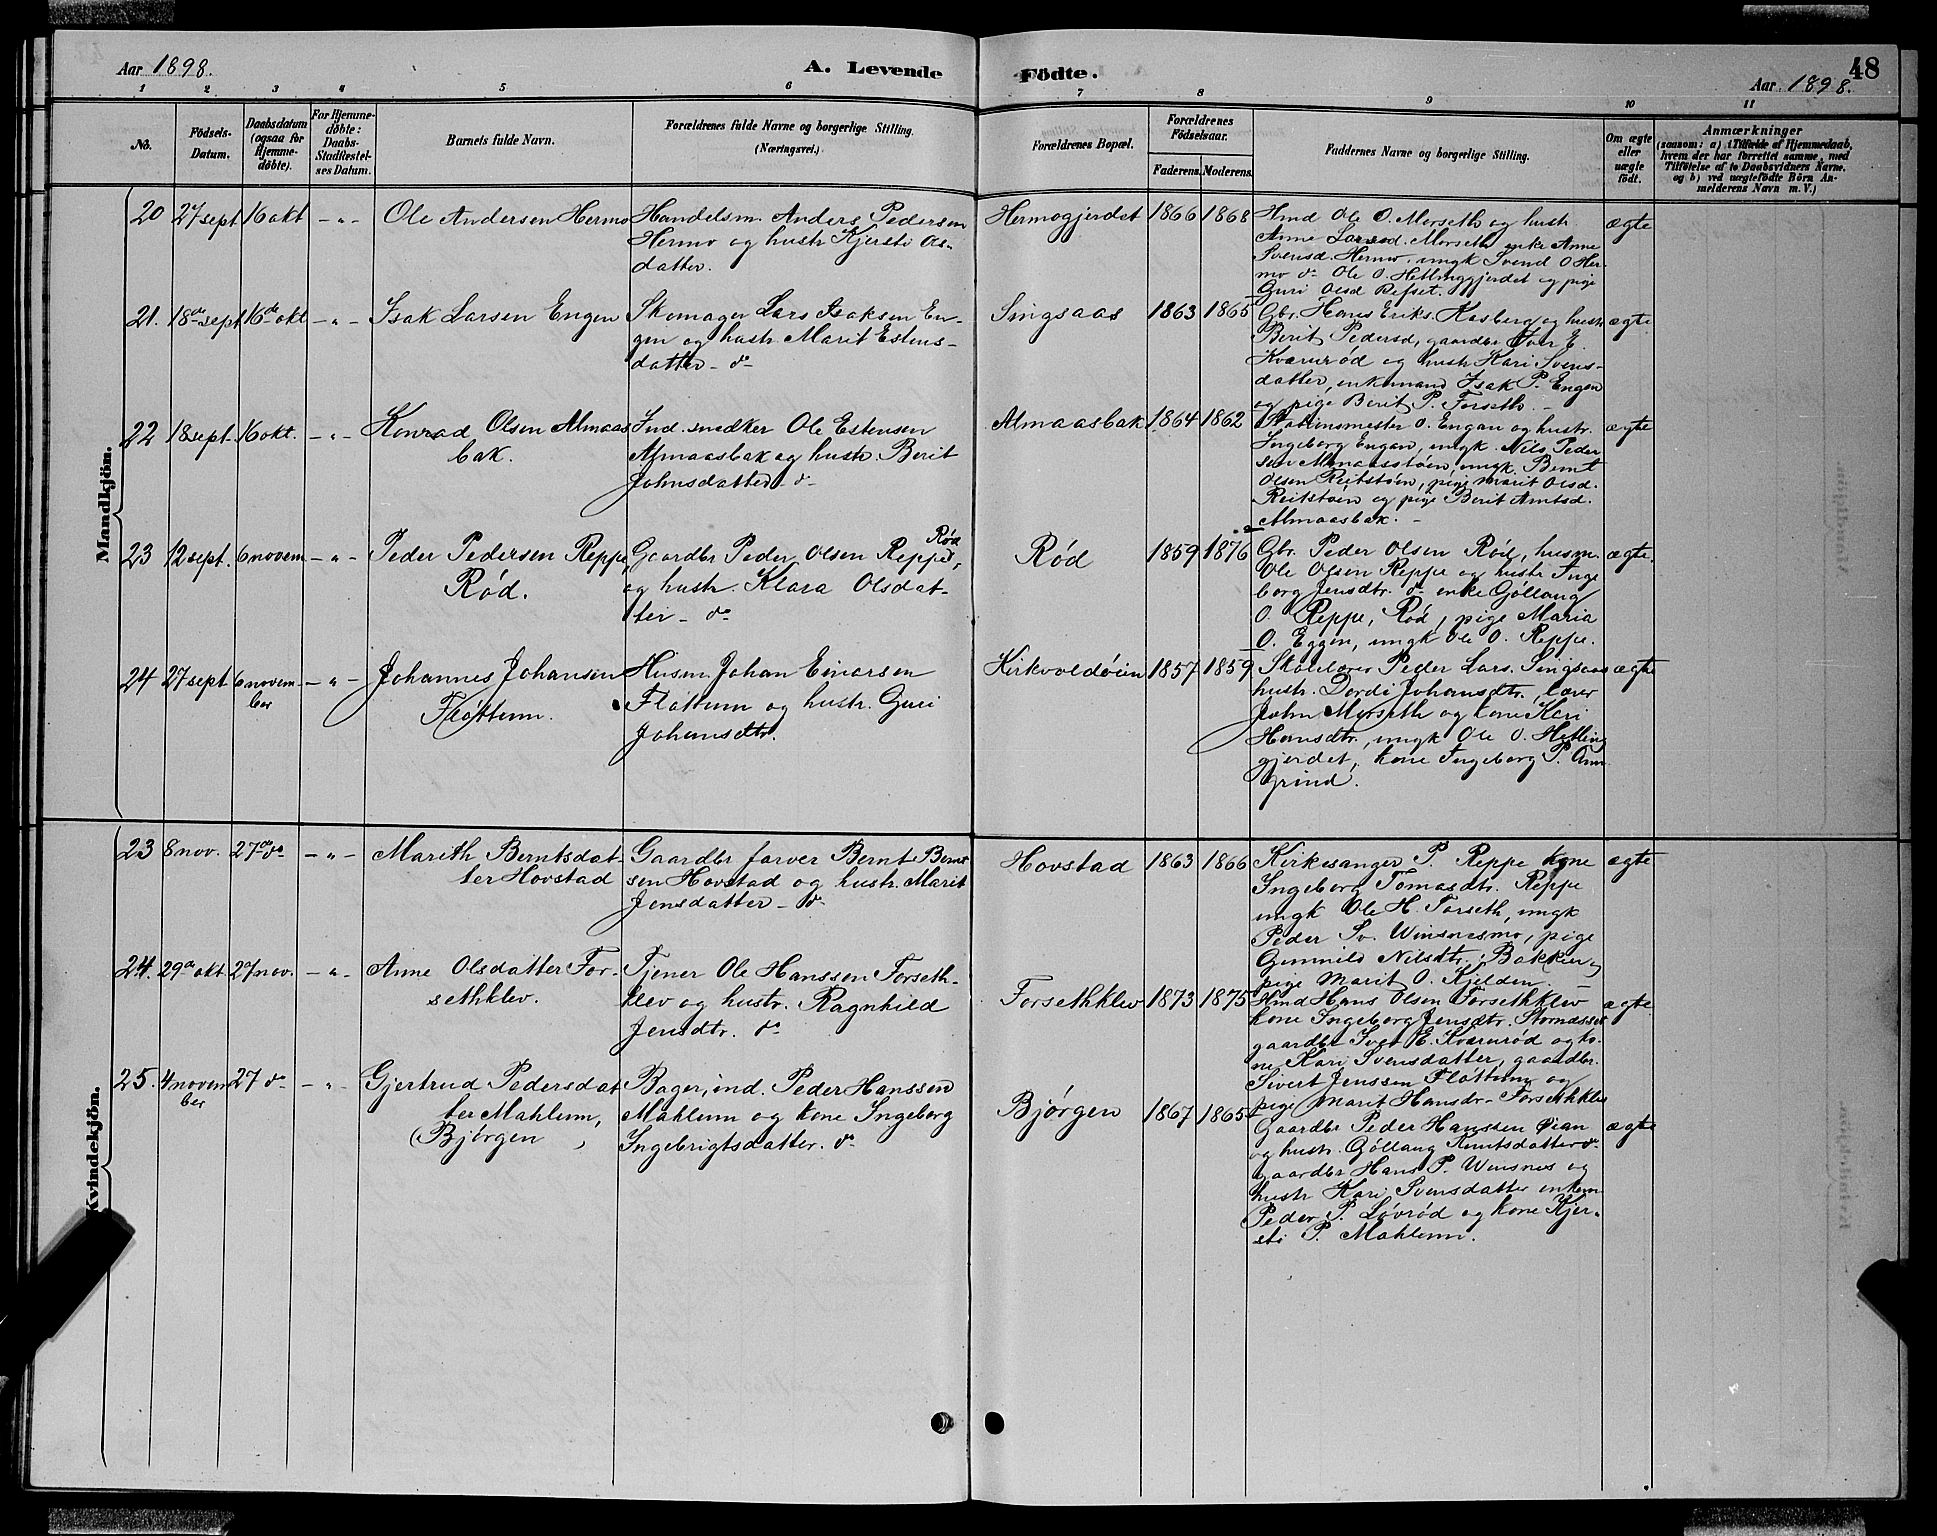 Aar 1898.
A. Levende
Födte.
48
Aar 1898.
1 2 3 4 5 6 7 8 9 10 11
No.
Födsels-
Datum.
Daabsdatum
(ogsaa for
Hjemme-
döbte).
For Hjemme-
döbte:
Daabs-
Stadfæstel-
ses Datum.
Barnets fulde Navn.
Forældrenes fulde Navne og borgerlige Stilling.
(Næringsvei.)
Forældrenes Bopæl.
Forældrenes
Födselsaar.
Faderens. Moderens.
Faddernes Navne og borgerlige Stilling.
Om ægte
eller
uægte
født.
Anmærkninger
(saasom: a) i Tilfælde af Hjemmedaab,
hvem der har forrettet samme, med
Tilføielse af to Daabsvidners Navne.
og b) ved uægtefødte Börn An-
melderens Navn m. V.)
Mandkjön.
20 27 sept 16 okt - " - Ole Andersen Hermo
Handelsm. Anders Pedersen
Hermo og hustr Kjersti Ols-
datter.
Hermogjerdet 1866 1868
Hmd Ole O. Morseth og hustr
Anne Larsd. Morseth enke Anne
Svensd. Hermo, ungk Svend O Her-
mo do Ole O. Hellinggjerdet og pige
Guri Olsd Refset.
ægte
21. 18de sept 16de okt - " - Isak Larsen Engen
Skomager Lars Isaksen En-
gen og hustr Marit Estens-
datter - do
Singsaas 1863 1865
Gbr. Hans Eriks. Kasberg og hustr
Berit Pedersd, gaardbr Iver E.
Kværnrød og hustr Kari Svens-
datter, enkemand Isak P. Engen
og pige Berit P. Forseth. -
ægte
22 18 sept. 16 okt. - " - Konrad Olsen Almaas
bak.
Ind. snedker Ole Estensen
Almaasbak og hustr. Berit
Johnsdatter - do
Almaasbak 1864 1862
Stationsmester O. Engan og hustr.
Ingeborg Engan, ungk. Nils Peder
sen Almaasstøen, ungk. Bernt
Olsen Reitstøen, pige Marit Olsd.
Reitstøen og pige Berit Arntsd.
Almaasbak. -
ægte
23 12 sept. 6 novem - " - Peder Pedersen Reppe
Rød.
Gaardbr Peder Olsen Reppe, Rød
og hustr. Klara Olsdat-
ter - do
Rød 1859 1876
Gbr. Peder Olsen Rød, husm.
Ole Olsen Reppe og hustr Inge
borg Jensdtr. do enke Gøllaug
O. Reppe, Rød, pige Maria
O. Eggen, ungk Ole O. Reppe.
ægte
24 27 sept 6 novem-
ber - " - Johannes Johansen
Fløttum.
Husm. Johan Einarsen
Fløttum og hustr. Guri
Johansdtr.
Kirkvoldøien 1857 1859
Skolelærer Peder Lars. Singsaas
hustr. Dordi Johansdtr., lærer
John Morseth og kone Kari
Hansdtr., ungk Ole O. Helling
gjerdet, kone Ingeborg P.
grind.
ægte
Kvindekjön.
23 8 nov. 27de do - " - Marith Berntsdat-
ter Hovstad
Gaardbr farver Bernt Bernt
sen Hovstad og hustr. Marit
Jensdatter - do
Hovstad 1863 1866
Kirkesanger P. Reppe kone
Ingeborg Tomasdtr. Reppe
ungk Ole H. Forseth, ungk
Peder Sv. Winsnesmo, pige
Gunnild Nilsdtr. Bakken,
pige Marit O. Kjelden. -
ægte
24. 29de okt. 27 nov. - " - Anne Olsdatter For-
sethklev.
Tjener Ole Hanssen Forseth-
klev og hustr. Ragnhild
Jensdtr. do
Forsethklev 1873 1875
Hmd Hans Olsen Forsethklev
kone Ingeborg Jensdtr.
gaardbr Iver E. Kværnrød og ko-
ne Kari Svensdatter, gaardbr.
Sivert Jenssen Fløttum og
pige Marit Hansdr. Forsethklev
ægte
25. 4 novem-
ber 27 do - " - Gjertrud Pedersdat
ter Mahlum,
(Bjørgen,
Bager, ind. Peder Hanssen
Mahlum og kone Ingeborg
Ingebrigtsdatter. do
Bjørgen 1867 1865
Gaardbr Peder Hanssen Øian
og hustr. Gøllaug Knutsdatter do
gaardbr Hans P. Winsnes og
hustr Kari Svensdatter enkem
Peder P. Løvrød og kone Kjer-
sti P. Mahlum.
ægte